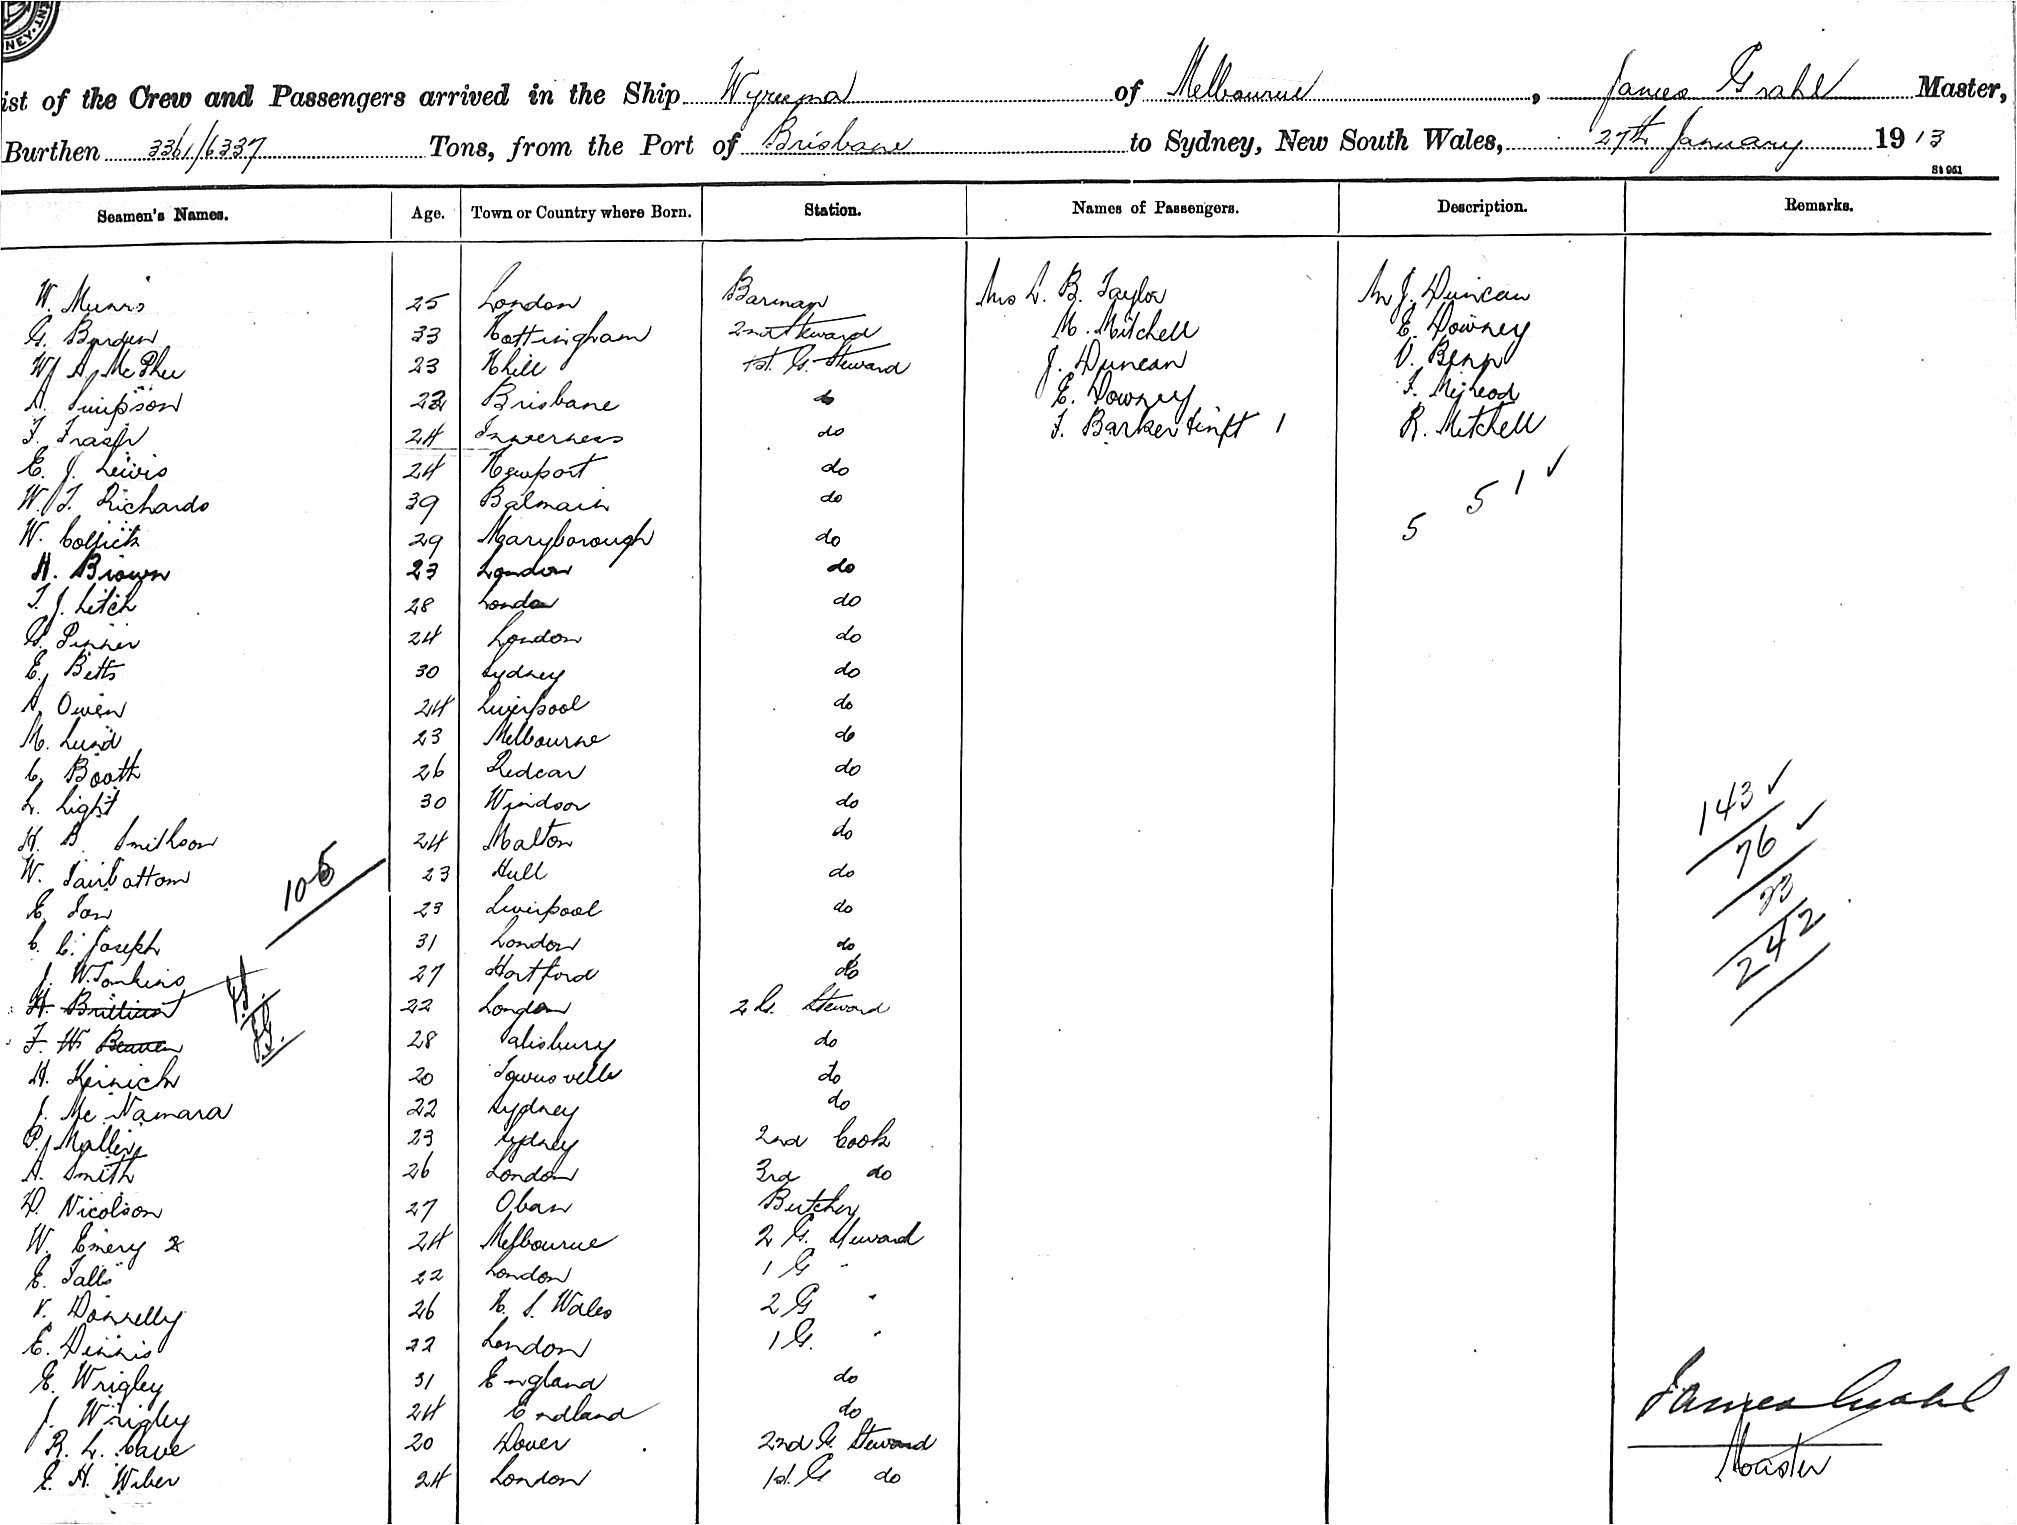 NEY.
ENT.
ist of the Crew and Passengers arrived in the Ship Wyreema of Melbourne, James Grahl Master,
Burthen 3361/6337 Tons, from the Port of Brisbane to Sydney, New South Wales, 27th January 1913
St 961
Seamen's Names. Age. Town or Country where Born. Station. Names of Passengers. Description. Remarks.
W. Munro 25 London Barman Mrs L. B. Taylor Mr J. Duncan
G. Barden 33 Nottingham 2nd Steward M. Mitchell E. Downey
W. A. McPhee 23 Rhill 1st. G. Steward J. Duncan V. Benn
A. Simpson 22 Brisbane do E. Downey F.
F. Fraser 24 Inverness do F. Barker & inft 1 R. Mitchell
E. J. Lewis 24 Newport do
W. T. Richards 39 Balmain do 5 5 1 ✓
W. Collick 29 Maryborough do
H. Brown 23 London do
T. J. Litch 28 London do
G. Pinner 24 London do
E. Betts 30 Sydney do
A. Owen 24 Liverpool do
M. Lund 23 Melbourne do
C. Booth 26 Redcar do
L. Light 30 Windsor do 143 ✓
H. B. Smithson 24 Malton do 76 ✓
W. Fairbottom 23 Hull do 23
105
E. Fox 23 Liverpool do 242
C. C. Joseph 31 London do
J. W. Tomkins 27 Hartford do
H. Brittian 22 London 2 G. Steward
F. W. Beaven 28 Salisbury do
H. Keinick 20 Townsville do
J. McNamara 22 Sydney do
P. Mallen 23 Sydney 2nd Cook
A. Smith 26 London 3rd do
D. Nicolson 27 Oban Butcher
W. Emery 24 Melbourne 2 G. Steward
E. Falls 22 London 1 G "
V. Donnelly 26 N. S. Wales 2 G "
E. Dennis 22 London 1 G. "
E. Wrigley 31 England do
J. Wrigley 24 Endland do
R. L. Cave 20 Dover 2nd G. Steward
E. H. Wiber 24 London 1st. G do
James Grahl
Master